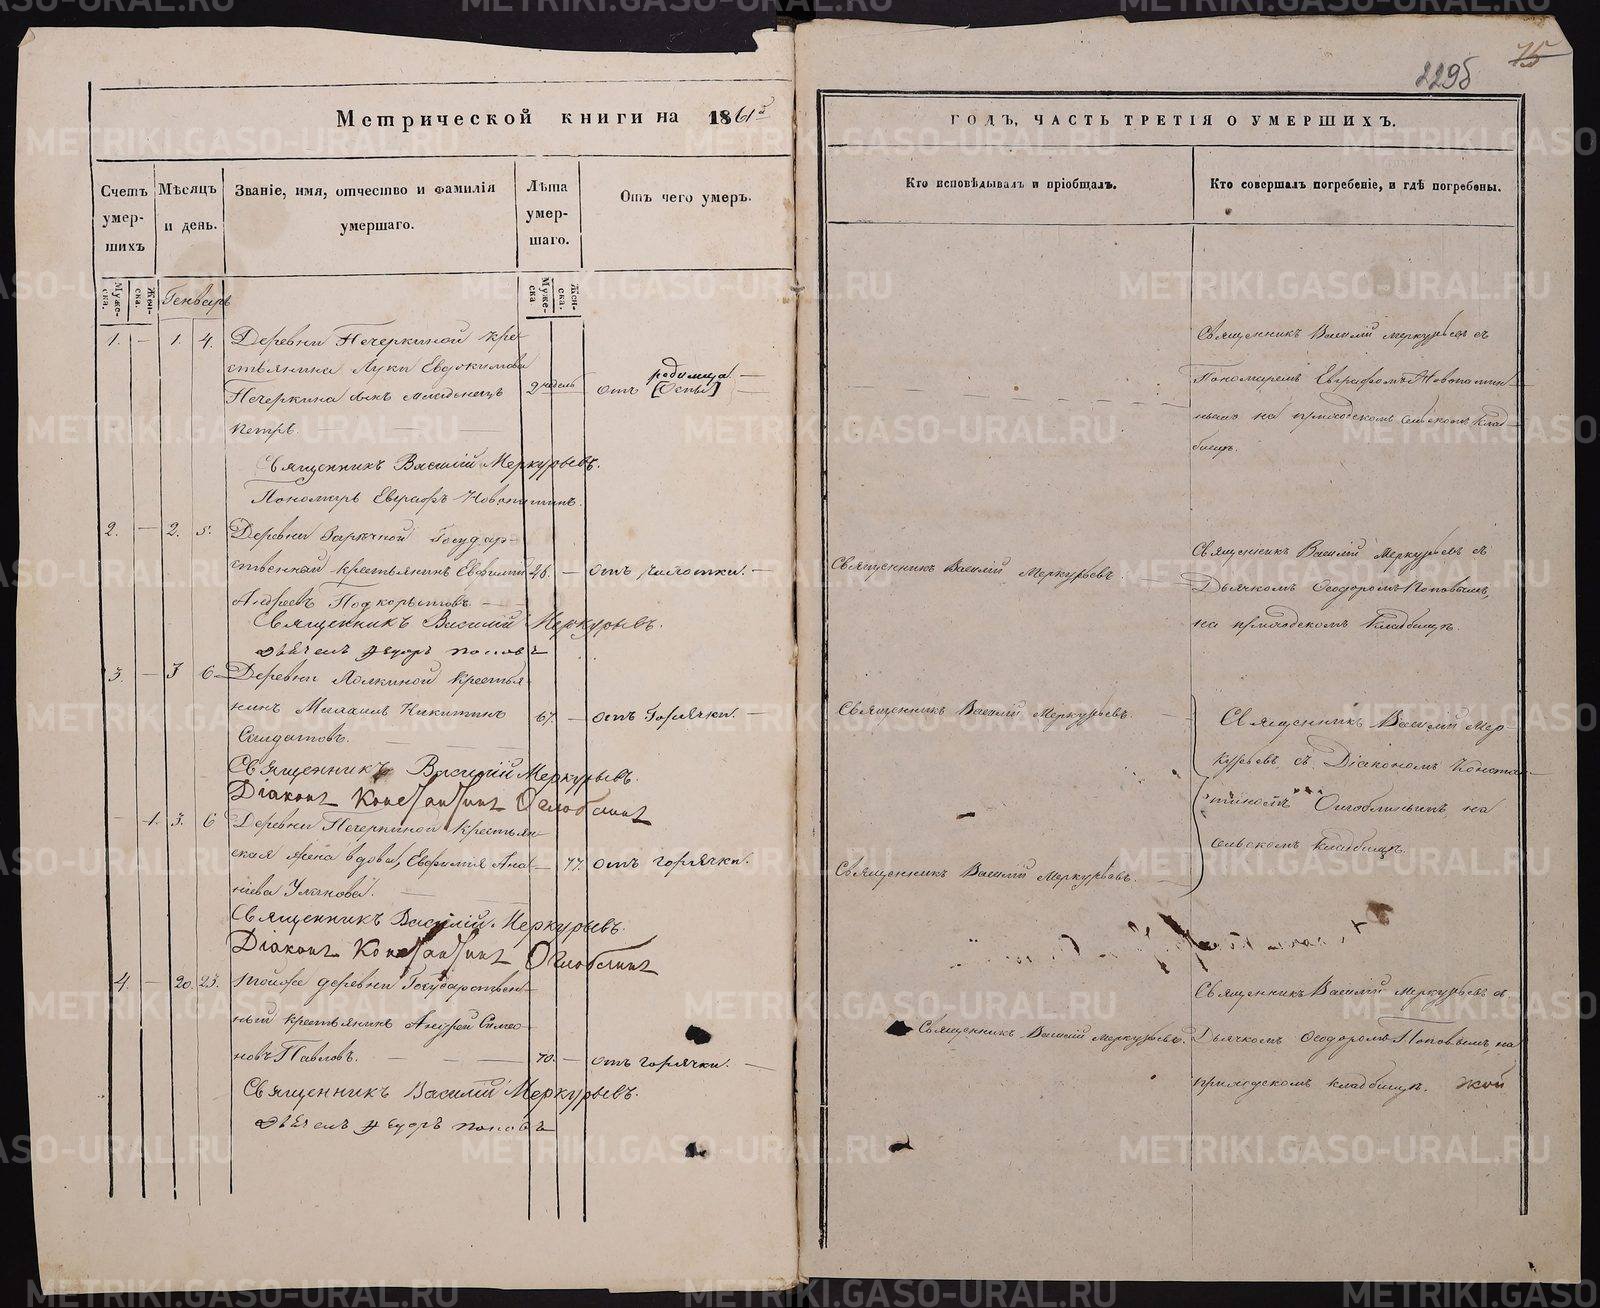 75
229б
Метрической книги на 1861й
ГОДЪ, ЧАСТЬ ТРЕТІЯ О УМЕРШИХЪ.
Счетъ умерших
Мѣсяцъ и день.
Званіе, имя, отчество и фамилія умершаго.
Лѣта умершаго.
Отъ чего умеръ.
Кто исповѣдывалъ и пріобщалъ.
Кто совершалъ погребеніе, и гдѣ погребены.
Мужеска.
Женска.
Генварь
Мужеска
Женска.
1. — 1. 4. Деревни Печеркиной кре-
стьянина Луки Евдокимова
Печеркина сынъ младенецъ
Петръ.
2 недель
отъ родимца [Оспы]
Священникъ Василій Меркурьевъ съ
Пономаремъ Евграфомъ Новопашин-
нымъ на приходскомъ сельскомъ клад-
бищѣ.
Священникъ Василій Меркурьевъ.
Пономарь Евграфъ Новопашинъ.
2. — 2. 5. Деревни Заречной Государ-
ственный крестьянинъ Евфимій
Андреевъ Подкорытовъ.
48. — отъ чахотки.
Священникъ Василій Меркурьевъ.
Священникъ Василій Меркурьевъ съ
Дьячкомъ Ѳеодоромъ Поповымъ,
на приходскомъ кладбищѣ.
Священникъ Василій Меркурьевъ.
Федоръ Поповъ
3. — 3 6 Деревни Крестья-
нинъ Михаилъ Никитинъ
Солдатовъ.
67. — отъ Горячки.
Священникъ Василій Меркурьевъ.
Священникъ Василій Мер-
курьевъ съ Діакономъ Констан-
тиномъ Оглоблинымъ на
сельскомъ кладбищѣ.
Священникъ Василій Меркурьевъ.
Діаконъ Константинъ Оглоблинъ
— 1. 3. 6 Деревни Печеркиной крестьян-
ская жена вдова, Евфимія Ана-
ніева
— 77. отъ горячки.
Священникъ Василій Меркурьевъ.
Священникъ Василій Меркурьевъ.
Діаконъ Константинъ Оглоблинъ
4. — 20. 23. тойже деревни Государствен-
ный крестьянинъ Андрей Симео-
новъ Павловъ.
70. — отъ горячки.
Священникъ Василій Меркурьевъ.
Священникъ Василій Меркурьевъ съ
Дьячкомъ Ѳеодоромъ Поповымъ, на
приходскомъ кладбищѣ.
Священникъ Василій Меркурьевъ.
Федоръ Поповъ
METRIKI.GASO-URAL.RU